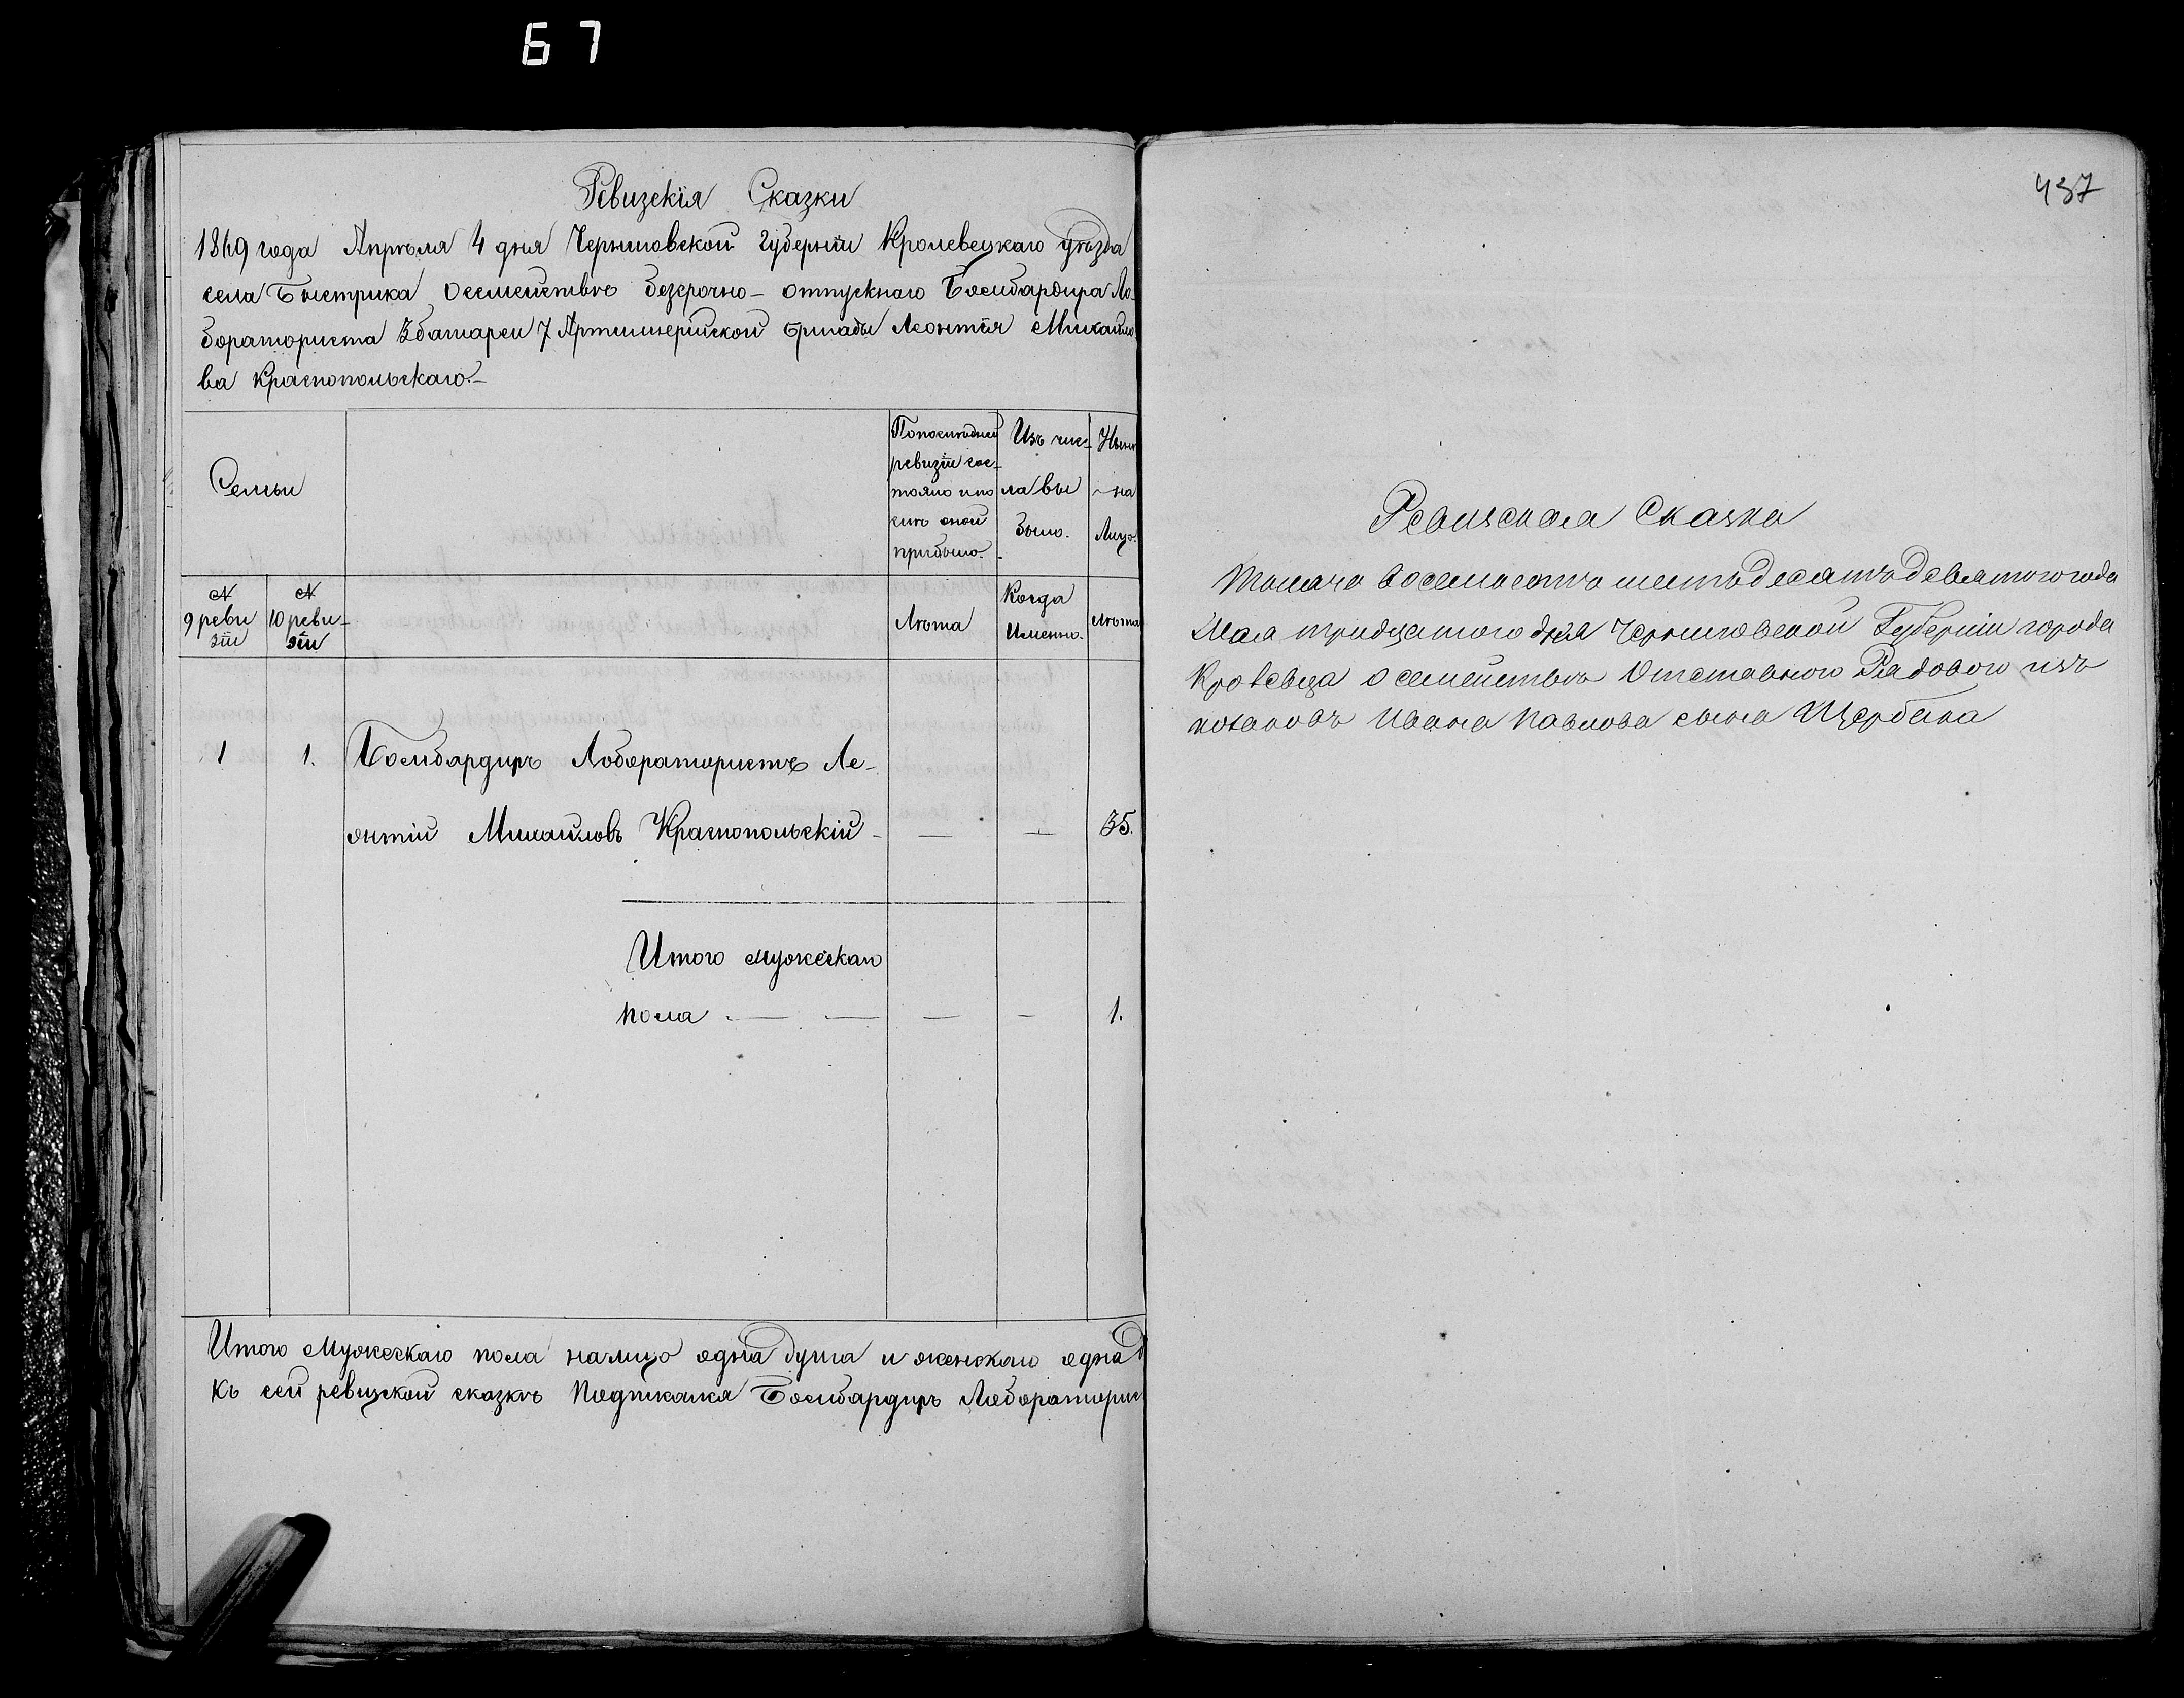 67
Ревизскія Сказки
1869 года Апрѣля 4 дня Черниговской Губерніи Кролевецкаго уѣзда
села Быстрика Осемействѣ безсрочно-отпускнаго Бомбардира Ло-
бораториста 3 батареи 7 Артиллерійской бригады Леонтія Михайло
ва Краснопольскаго.-
Семьи
Попоследней
ревизіи сос-
тояло и по
слѣ оной
прибыло.
Изъ чис-
ла вы
было.
Нынѣ
-на
Лицо.
№
9 реви
зіи
№
10 реви-
зіи
Лѣта
Когда
Именно.
Лѣта
1 1. Бомбардиръ Лоборатористъ Ле-
онтій Михайловъ Краснопольскій - — — 35.
Итого мужескаго
пола - — — — - 1.
Итого Мужескаго пола налицо одна душа и женскаго одна д
Къ сей ревизской сказкѣ Подписался Бомбардиръ Лобораторис
437
Ревизская Сказка
Тысяча восемьсотъ шестьдесятъ девятого года
Мая тридцатого дня Черниговской Губерніи города
Кролевца о семействѣ Отставного Рядового изъ
козаковъ Ивана Павлова сына Щербака